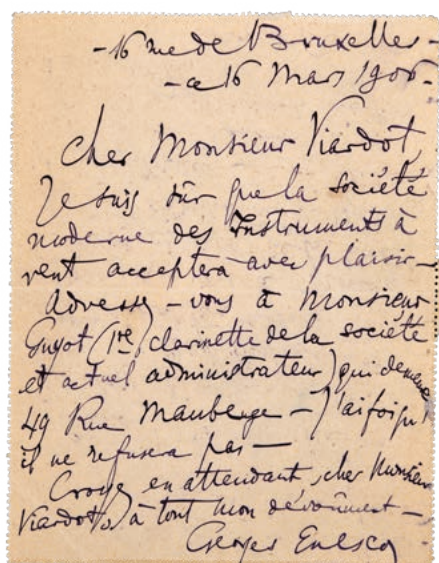 - 16 rue de Bruxelles -
- a 16 Mars 1906 -
Cher Monsieur Viardot,
Je suis sûr que la société
moderne des Instruments à
vent acceptera avec plaisir -
Adressez - vous à Monsieur
Guyot (1re clarinette de la société
et actuel administrateur) qui demeure
49 Rue Maubeuge - J'ai foi qu'
il ne refusera pas -
Croyez en attendant, cher Monsieur
Viardot, à tout mon dévoûment -
Georges Enesco